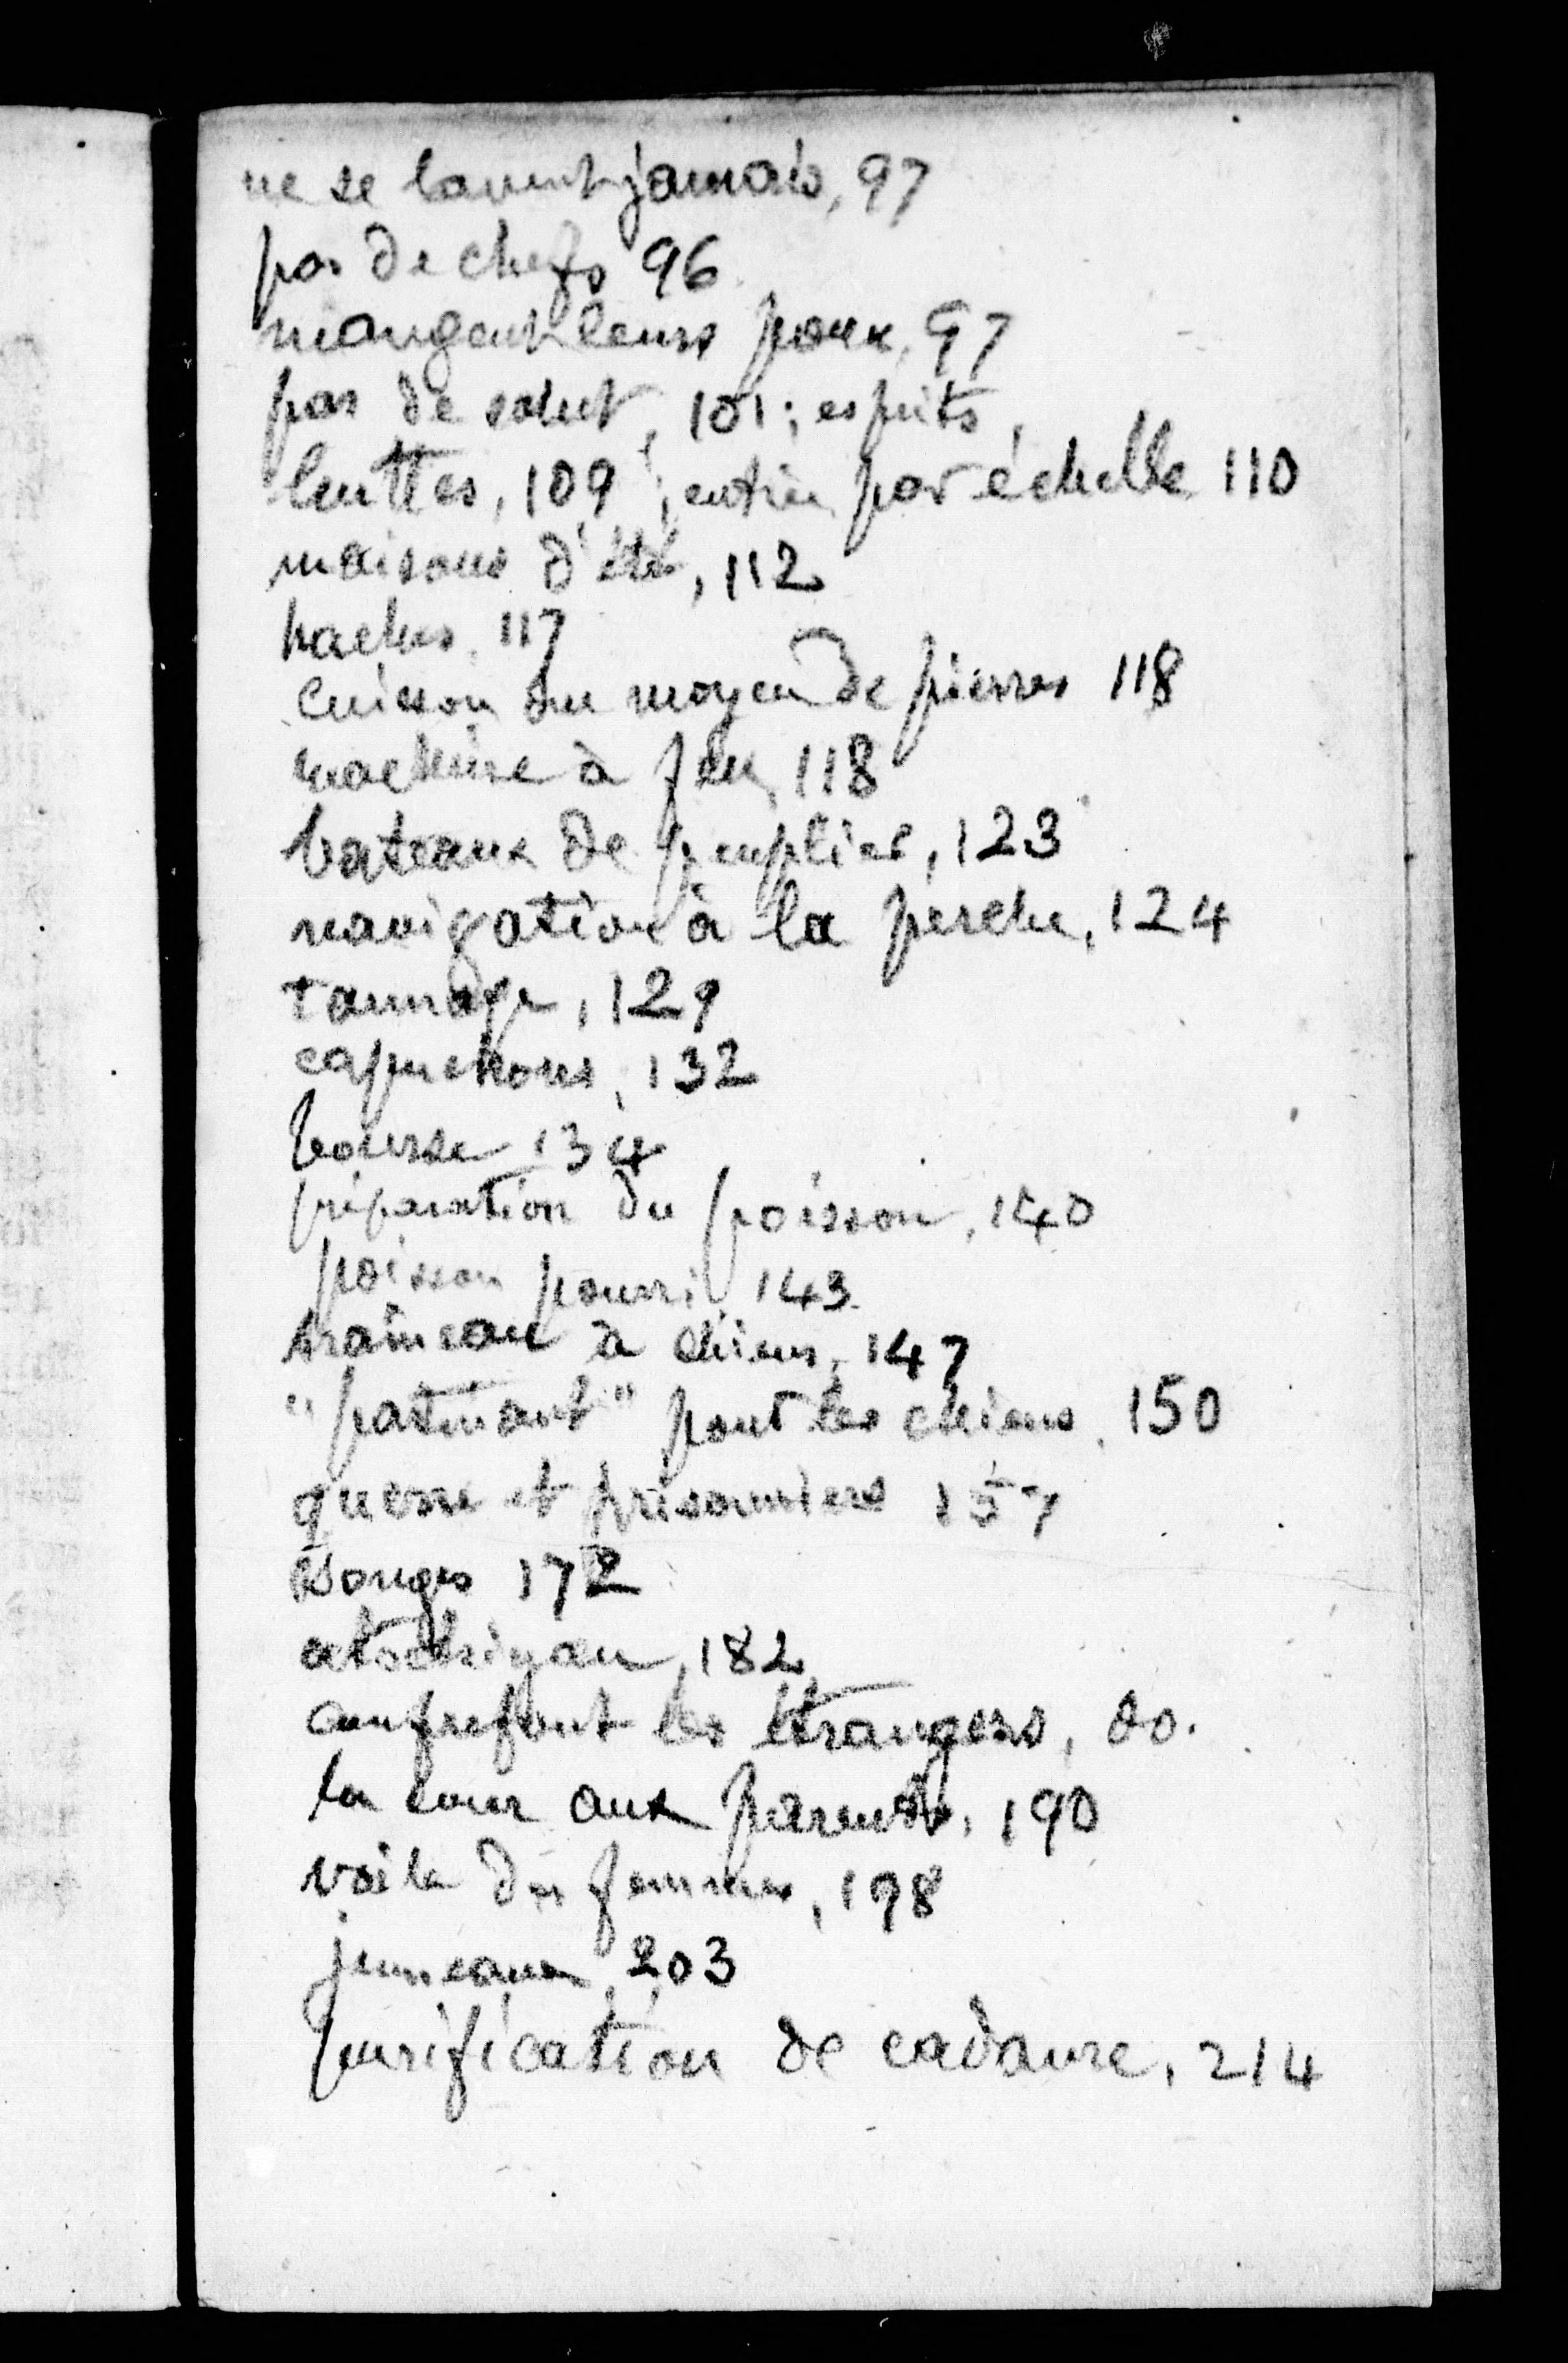 ne se lavent jamais, 97
pas de chefs 96
mangent leurs poux, 97
pas de salut, 101; esprits,
huttes, 109; entrée par échelle 110
maisons d'été, 112
haches, 117
Cuisson au moyen de pierres 118
machine à feu, 118
bateaux de peuplier, 123
navigation à la perche, 124
tannage, 129
capuchons, 132
bourse 134
préparation du poisson, 140
poisson pourri 143
traîneau à chiens, 147
" " pour les chiens, 150
guerre et prisonniers 157
songes 172
182
les étrangers, do.
la cour aux parents, 190
voile des femmes, 198
jumeaux, 203
purification de cadavre, 214